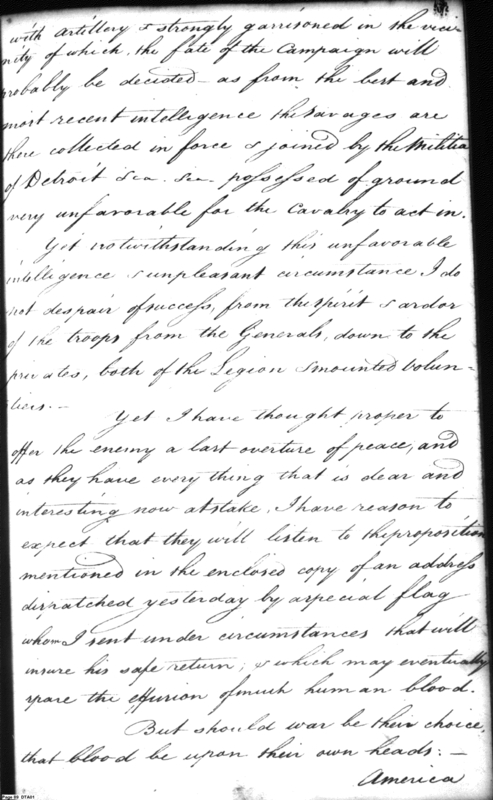 with Artillery & strongly garrisoned in the vici-
nity of which, the fate of the Campaign will
probably be decided - as from the best and
most recent intelligence the Savages are
there collected in force & joined by the Militia
of Detroit &ca. &ca. possessed of ground
very unfavorable for the Cavalry to act in.
Yet notwithstanding this unfavorable
intelligence & unpleasant circumstance, I do
not despair of success, from the spirit & ardor
of the troops from the Generals, down to the
privates, both of the Legion & mounted Volun-
tiers.-
Yet I have thought proper to
offer the enemy a last overture of peace, and
as they have every thing that is dear and
interesting now at stake, I have reason to
expect that they will listen to the proposition
mentioned in the enclosed copy of an address
dispatched yesterday by a special flag
whom I sent under circumstances that will
insure his safe return; & which may eventually
spare the effusion of much human blood.
But should war be their choice,
that blood be upon their own heads: -
America
Page 29 DTA01